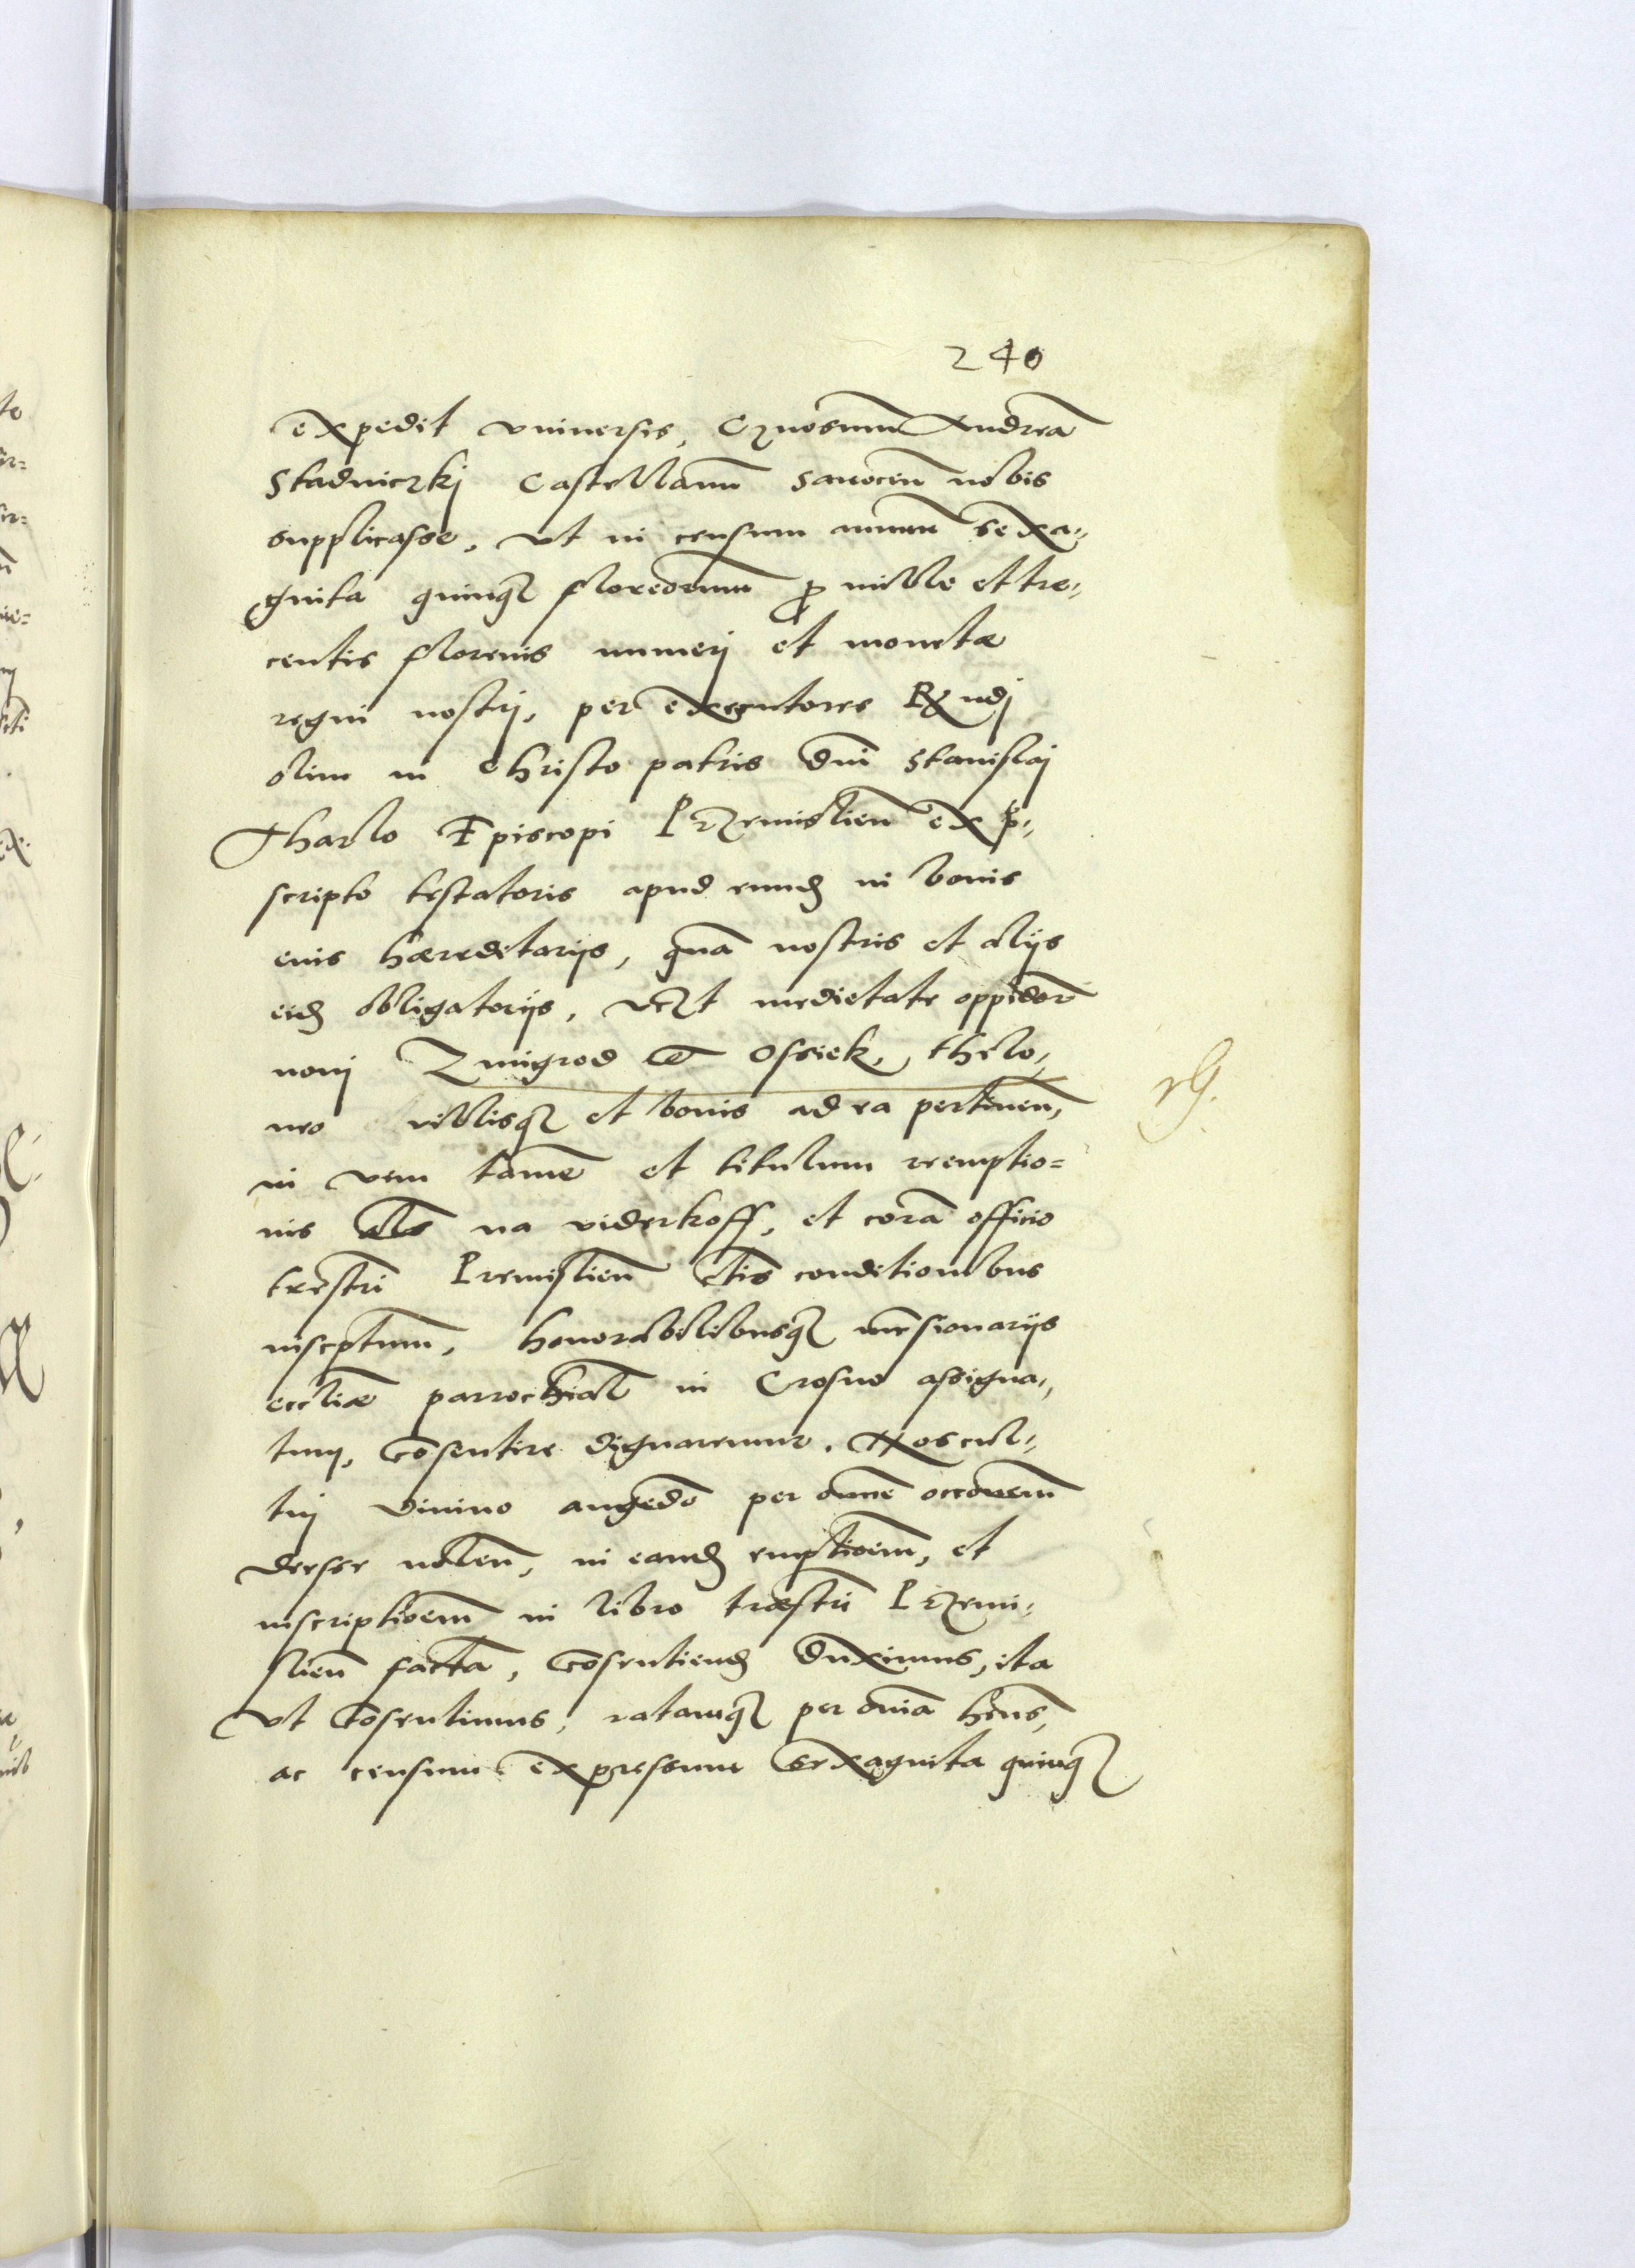 240
expedit vniuersis, Gnosum Andreā
Stadniczkj Castellanū Sanocen̄ nobis
supplicasse, vt in censum annuū sexa⸗
ginta quinq₃ florenorum ꝓ mille et tre⸗
centis florenis numerj et monetæ
regni nostrj, per executores Rₑndj
olim in Christo patris Dn̄i Stanislaj
Tharlo Episcopi Przemislien̄ ex p̄⸗
scripto testatoris apud eund₃ in bonis
euis hæreditarijs, quā nostris et alijs
eid₃ obligatorijs, vꝫt medietate oppidor̄
nouj Zmigrod et Ossiek, thelo⸗
rG.
neo villisq₃ et bonis ad ea pertinen̄,
in vim tamē et titulum reemptio=
nis als na viderkoff, et corā officio
trēstri Premislien̄ ctis conditionibus
inscptum, honorabilibusq₃ mansionarijs
eccliæ parrochial in Crosno assigna⸗
tum, cōsentire dignaremur. Nos cul⸗
tuj diuino augēdo per omnē occonem̄
deesse nolen̄, in eand₃ emptioem̄, et
inscriptioem̄ in libro træstri Przemi⸗
slien̄ factā, cōsentiend₃ duximus, ita
vt cōsentimus, ratamq₃ per omīa hn̄s,
ac censum expressum sexaginta quinq₃